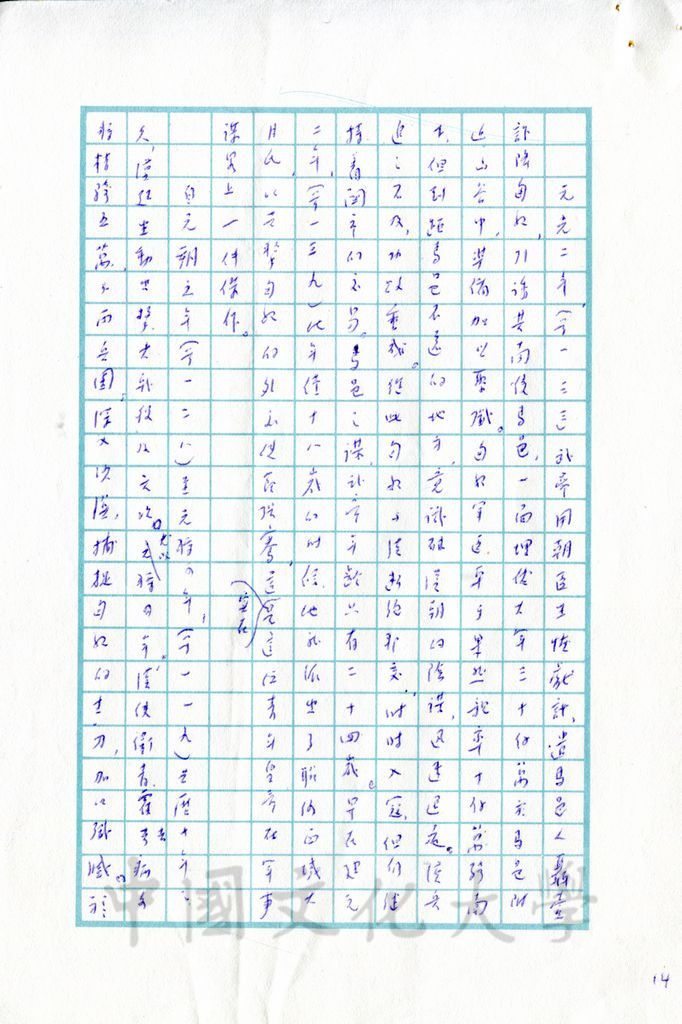 元光二年(前一三三)武帝用朝臣王恢獻計,遣馬邑人聶壹
詐降匈奴,引誘其南侵馬邑,一面埋伏大軍三十餘萬於馬邑附
近山谷中,準備加以聚殲。匈奴軍臣單于果然親率十餘萬騎南
下,但到距馬邑不遠的地方,竟識破漢朝的陰謀,迅速退走。漢兵
追之不及,功敗垂成。從此匈奴與漢斷絕和交,時時入寇,但仍維
持着關市的交易。馬邑之謀,武帝年齡只有二十四歲。早在建元
二年(前一三九)此年僅十八歲的時候,他就派出了聯絡西域大
月氏以夾擊匈奴的外交使臣張騫,這實在是這位青年皇帝在軍事
謀略上一件傑作。
自元朔元年(前一二八)至元狩四年,(前一一九)共歷十年之
久,漢廷主動出擊,大戰役凡六次。尤以元狩四年。漢使衛青、霍去病分
將精騎五萬,分兩兵團,深入決漠,捕捉匈奴的主力,加以殲滅。於
14
中國文化大學